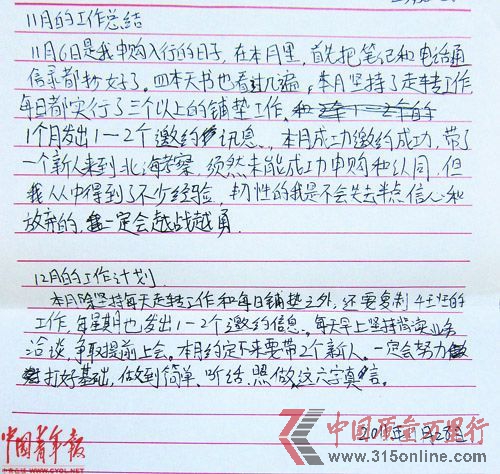 11月的工作总结
11月6日是我申购入行的日子,在本月里,首先把笔记和电话通
信录都抄好了。四本天书也看过几遍,本月坚持了走转工作
每日都实行了三个以上的铺垫工作。
1个月发出1—2个邀约讯息、本月成功邀约成功,带了
一个新人来到北海考察、须然未能成功申购和认同,但
我从中得到了不少经验,韧性的我是不会失去半点信心和
放弃的,我一定会越战越勇.
12月的工作计划
本月除坚持每天走转工作和每日铺垫之外,还要复制4主性的
工作,每星期也发出1—2个邀约信息、每天早上坚持
洽谈,争取提前上会。本月约定下来要带2个新人。一定会努力做
打好基础,做到简单、听话、照做、这六字真言.
中国青年报
中青在线 WWW.CYOL.NET
中国质量万里行
www.315online.com